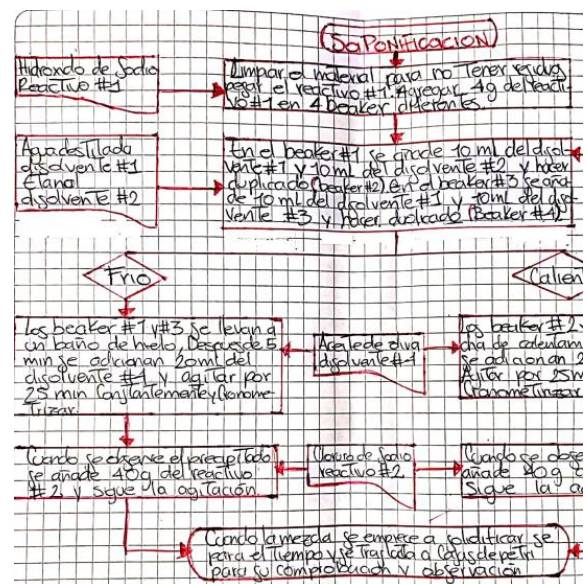 SaPONIFICACION
Hidroxido de Sodio
Reactivo #1
Limpiar el material para no Tener residuos
pesar el reactivo #1. Agregar 4g del reacti-
vo #1 en 4 Beaker diferentes.
Agua destilada
disolvente #1
Etanol
disolvente #2
En el beaker #1 se añade 10 ml del disol-
vente #1 y 10 ml del disolvente #2 y hacer
duplicado (beaker #2). En el beaker #3 se aña-
de 10 ml del disolvente #1 y 10 ml del disol-
vente #3 y hacer duplicado (Beaker #4)
Frio
Calien
Los beaker #1 y #3 se llevan a
un baño de hielo, Despues de 5
min se adicionan 20ml del
disolvente #1 y agitar por
25 min Constantemente y Crono me-
Trizar.
Aceite de oliva
disolvente #1
los beaker #2
cha de calentam
se adicionan 2
Agitar por 25 m
Cronometrizar
Cuando se observe el precipitado
se añade 40g del reactivo
#2 y sigue la agitación.
Cloruro de Sodio
reactivo #2
Cuando se obse
añade 40g
Sigue la a
Cuando la mezcla se empiece a solidificar se
para el Tiempo y se traslada a Cajas de petri
para su comprobación y observación